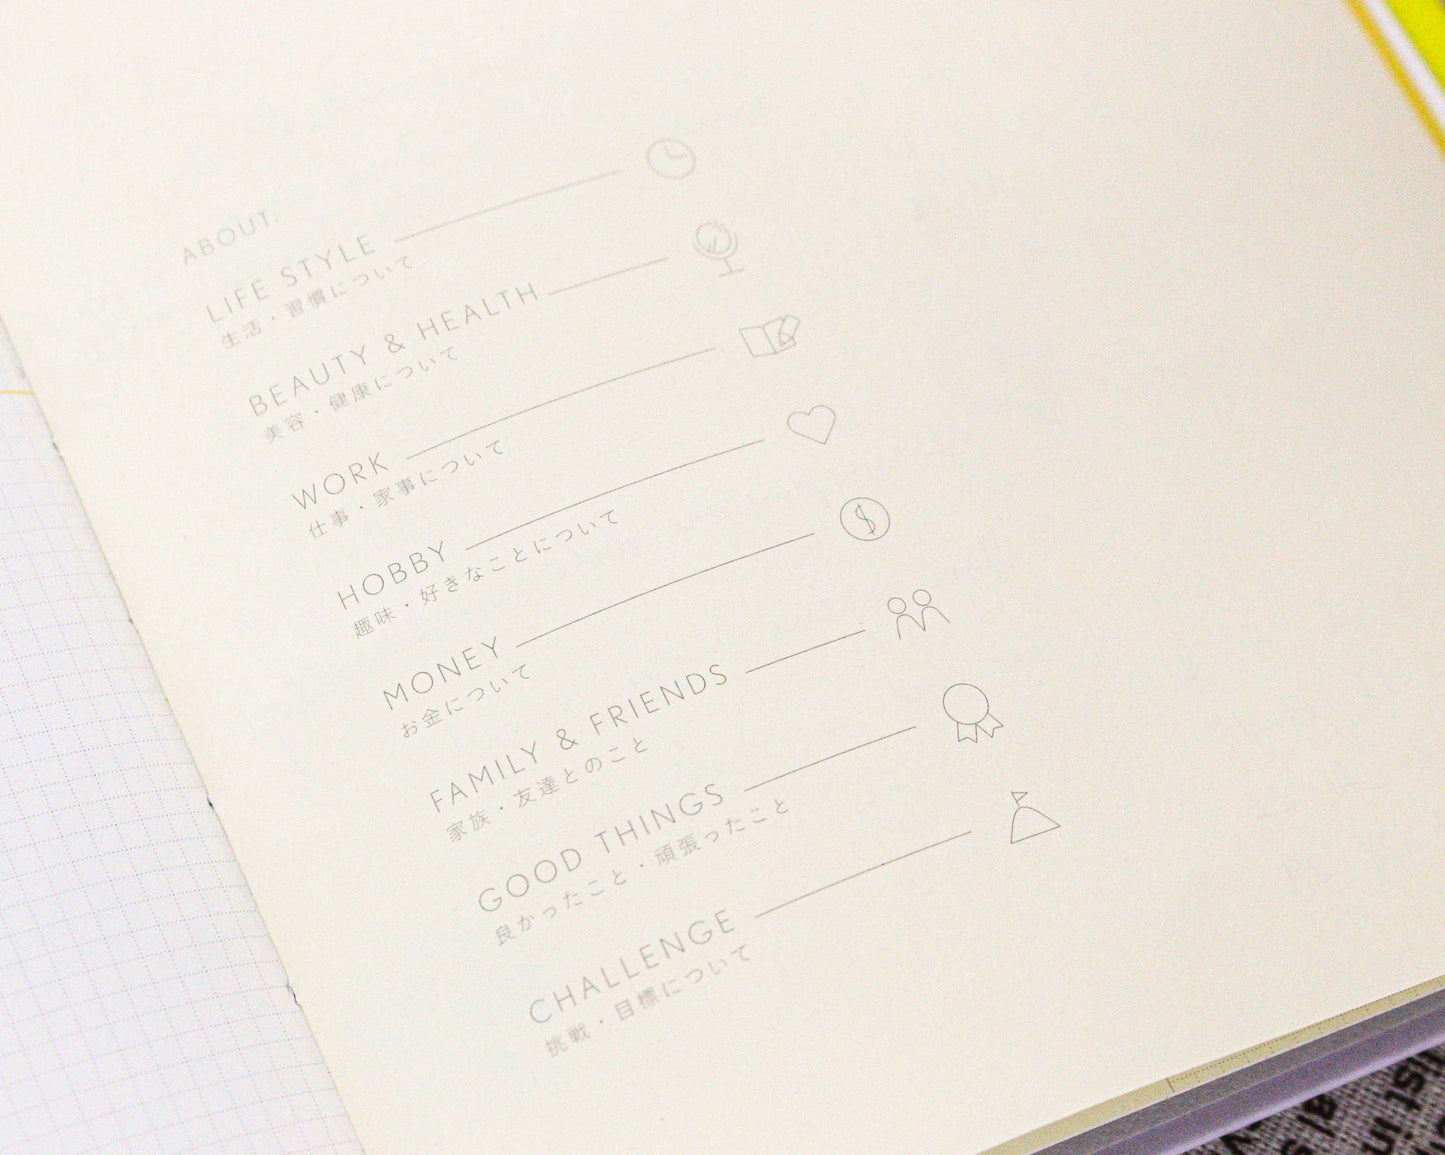 ABOUT.
LIFE STYLE
生活・習慣について
BEAUTY & HEALTH
美容・健康について
WORK
仕事・家事について
HOBBY
趣味・好きなことについて
MONEY
お金について
FAMILY & FRIENDS
家族・友達とのこと
GOOD THINGS
良かったこと・頑張ったこと
CHALLENGE
挑戦・目標について